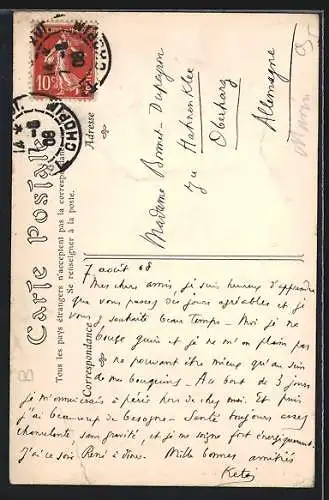 Carte Postale
Tous les pays étrangers n'acceptent pas la correspondance
Se renseigner à la poste.
Correspondance
Adresse
10
Madame Bonnet-Dupeyron
zu Hahnenklee
Oberharz
Allemagne
7 août 08
Mes chers amis, je suis heureux d'apprendre
que vous passez des jours agréables et je
vous y souhaite beau temps - Moi je ne
bouge guère et je ne m'en plains pas
ne pouvant être mieux qu'au sein
de mes bouquins - Au bout de 3 jours
je m'ennuierais à périr hors de chez moi. Et puis
j'ai beaucoup de besogne - Santé toujours assez
chancelante, sans gravité, et je me soigne fort énergiquement.
J'ai ce soir René à dîner. Mille bonnes amitiés